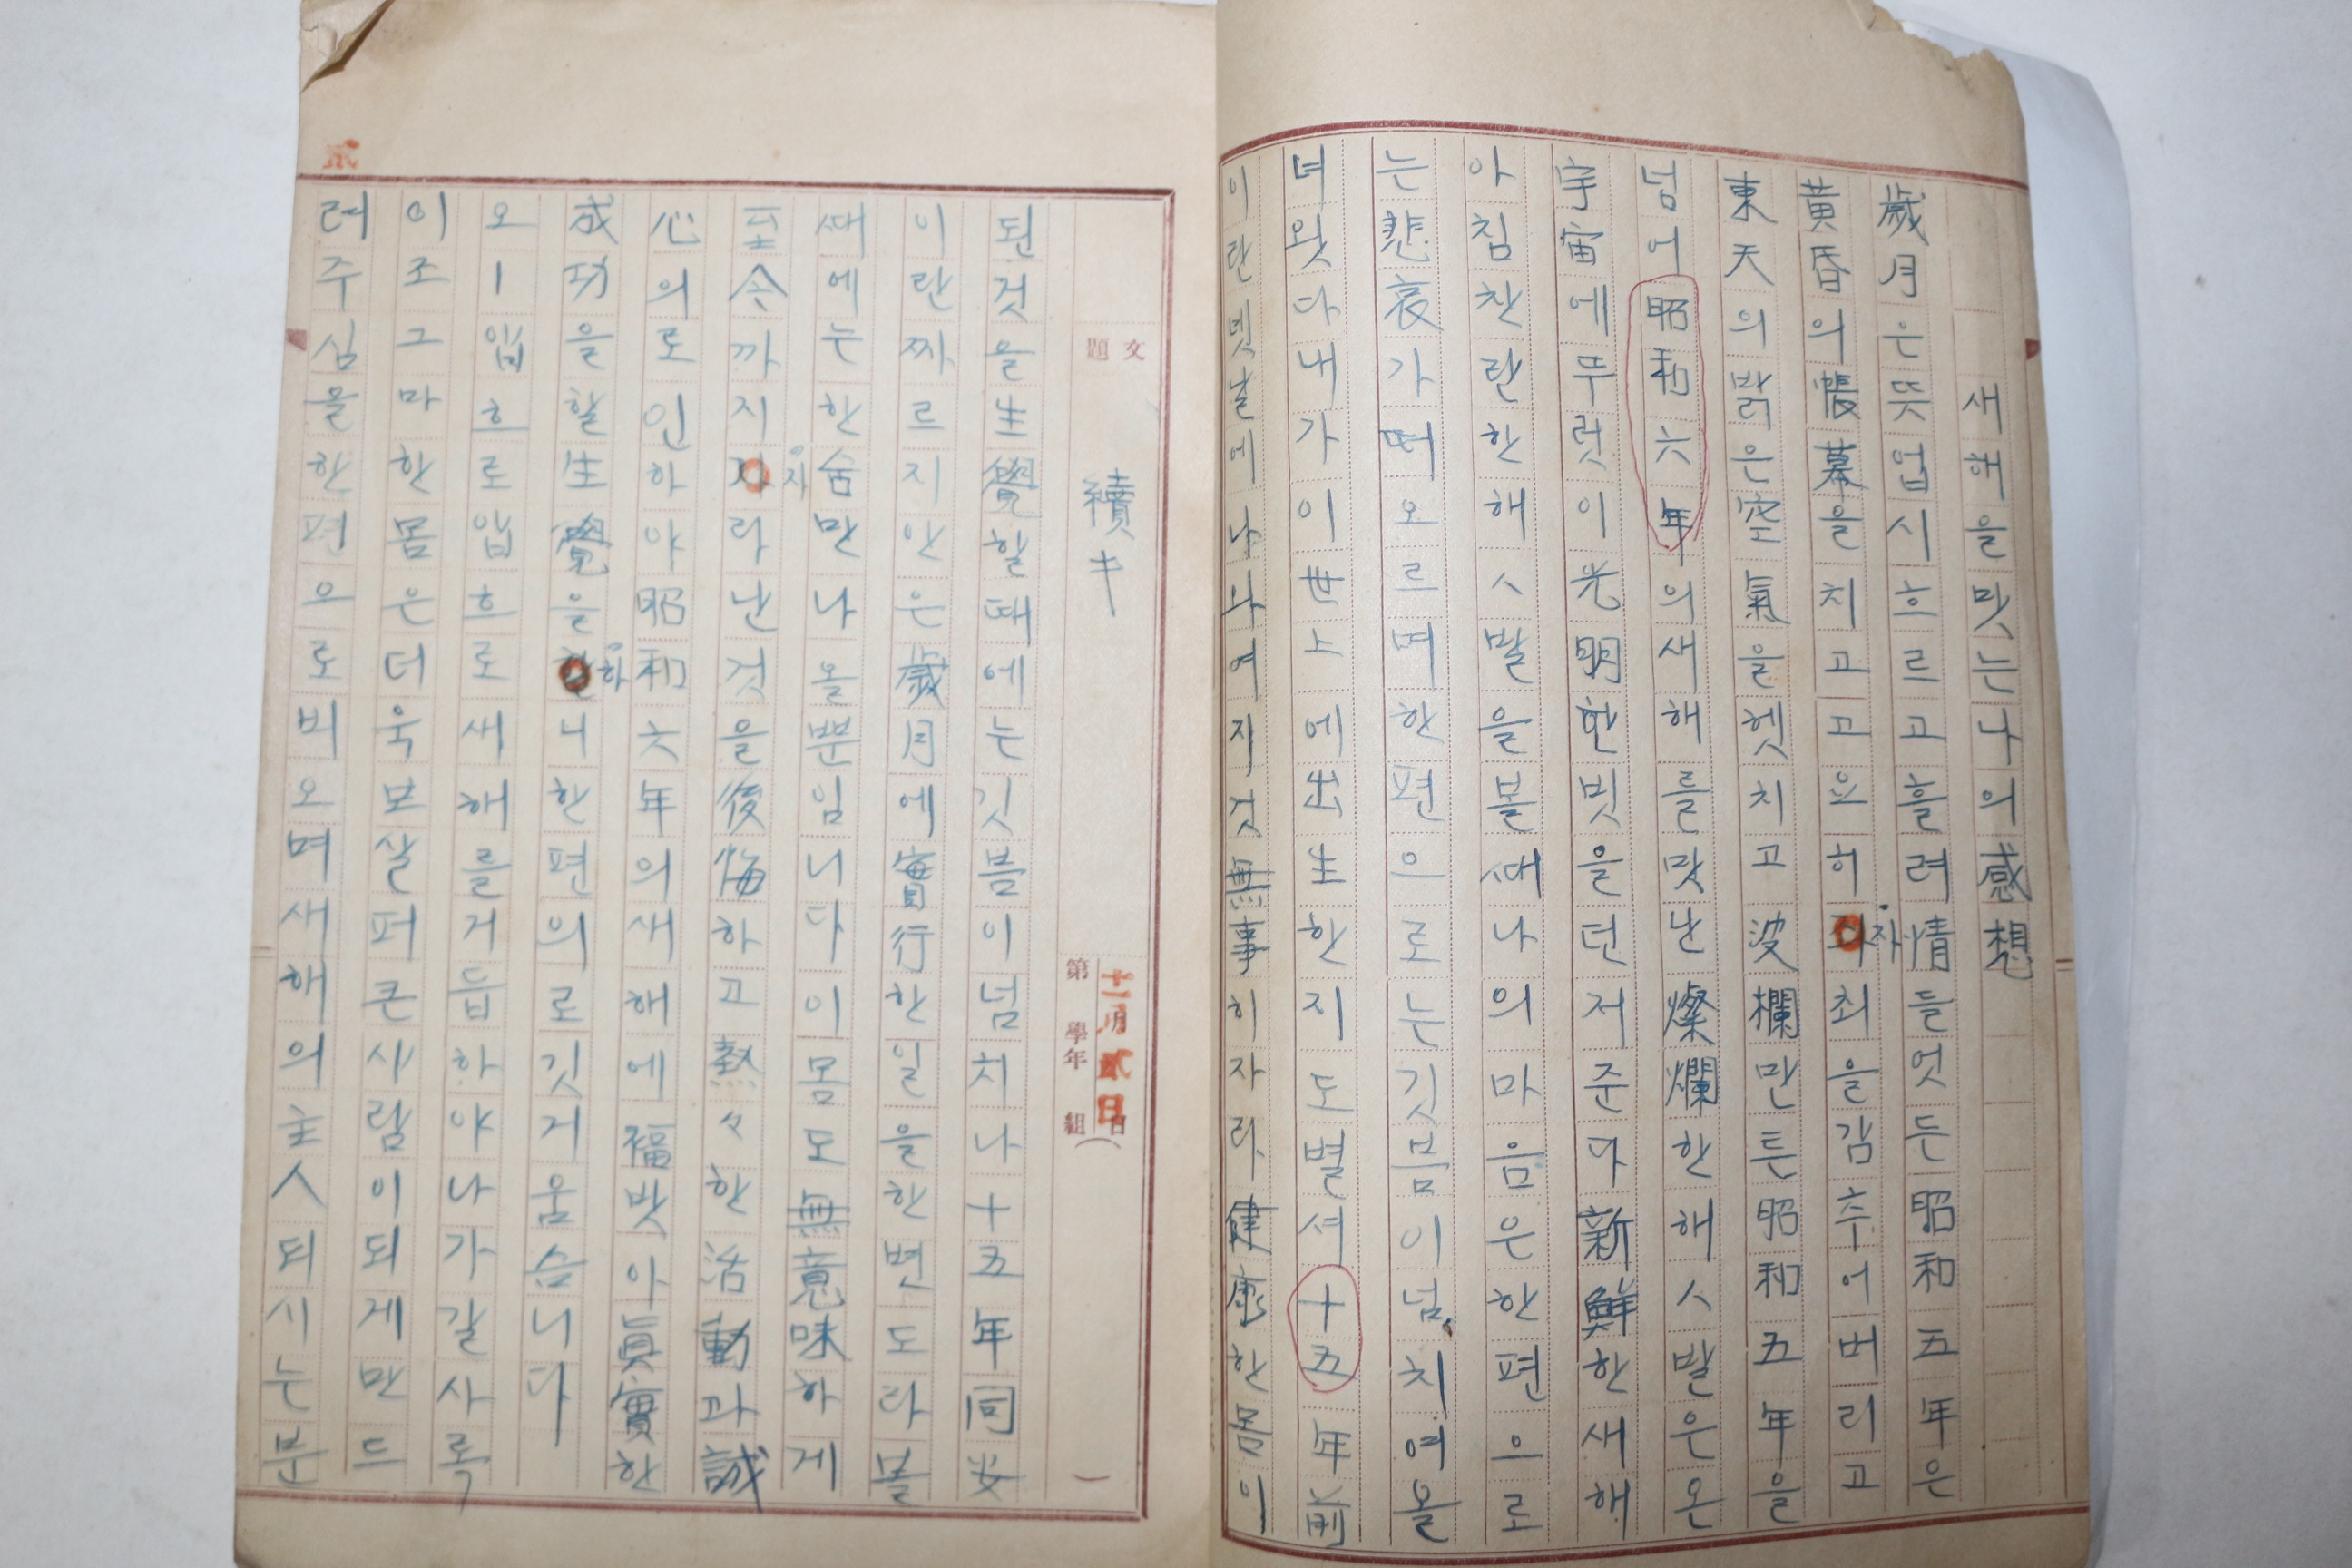 새해을맛는나의感想
歲月은뜻업시흐르고흘려情들엇든昭和五年은
黃昏의帳幕을치고고요히자최을감추어버리고
東天의맑은空氣을헷치고波欄만튼昭和五年을
넘어昭和六年의새해를맛난燦爛한해人발은온
宇宙에뚜럿이光明한빗을던저준다新鮮한새해
아침찬란한해人발을볼때나의마음은한편으로
는悲哀가떠오르며한편으로는깃븜이넘치여올
녀왓다내가이世上에出生한지도별셔十五年前
이란녯날에나와여지것無事히자라健康한몸이
文題
續キ
十一月貳日
第 學年 組
된것을生覺할때에는깃븜이넘처나十五年同安
이란짜르지안은歲月에實行한일을한번도다볼
때에는한숨만나올뿐임니다이몸도無意味하게
至今까지자라난것을後悔하고熱々한活動과誠
心의로인하야昭和六年의새해에福밧아眞實한
成功을할生覺을하니한편의로깃거움슴니다
오ー입흐로압흐로새해를거듭하야나가갈사록
이조그마한몸은더욱보살펴큰사람이되게만드
려주심을한편으로비오며새해의主人되시는분